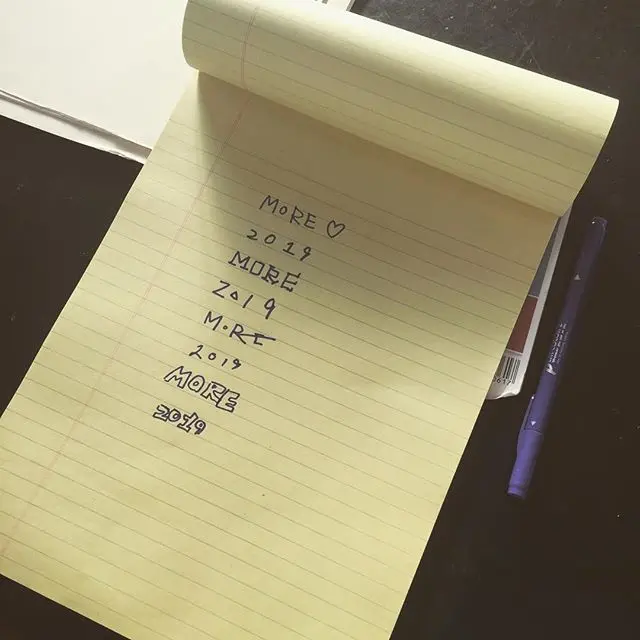 MORE ♡
2019
MORE
2019
MORE
2019
MORE
2019